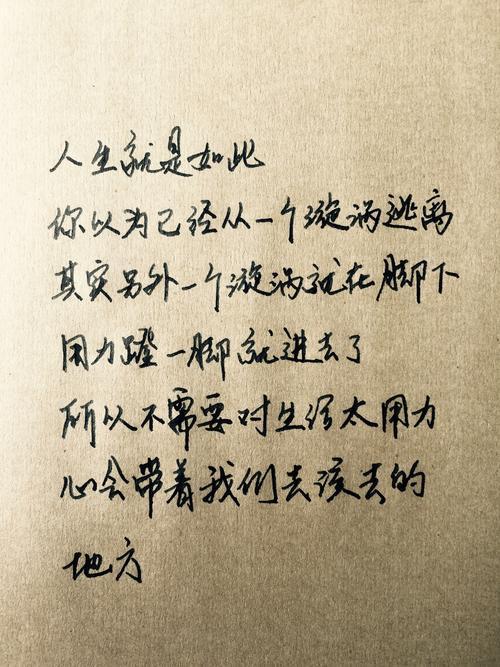 人生就是如此
你以为已经从一个漩涡逃离
其实另外一个漩涡就在脚下
用力蹬一脚就进去了
所以不需要对生活太用力
心会带着我们去该去的
地方